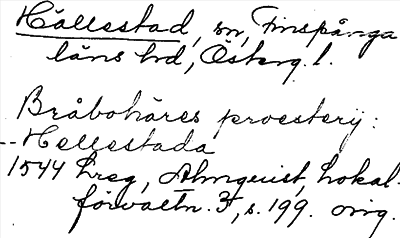 Hällestad, sn, Finspånga
läns hd, Österg. l.
Bråbohäres proestery:
-- Hellestada
1544 hreg, Almquist, Lokal-
förvaltn. 3, s. 199. orig.